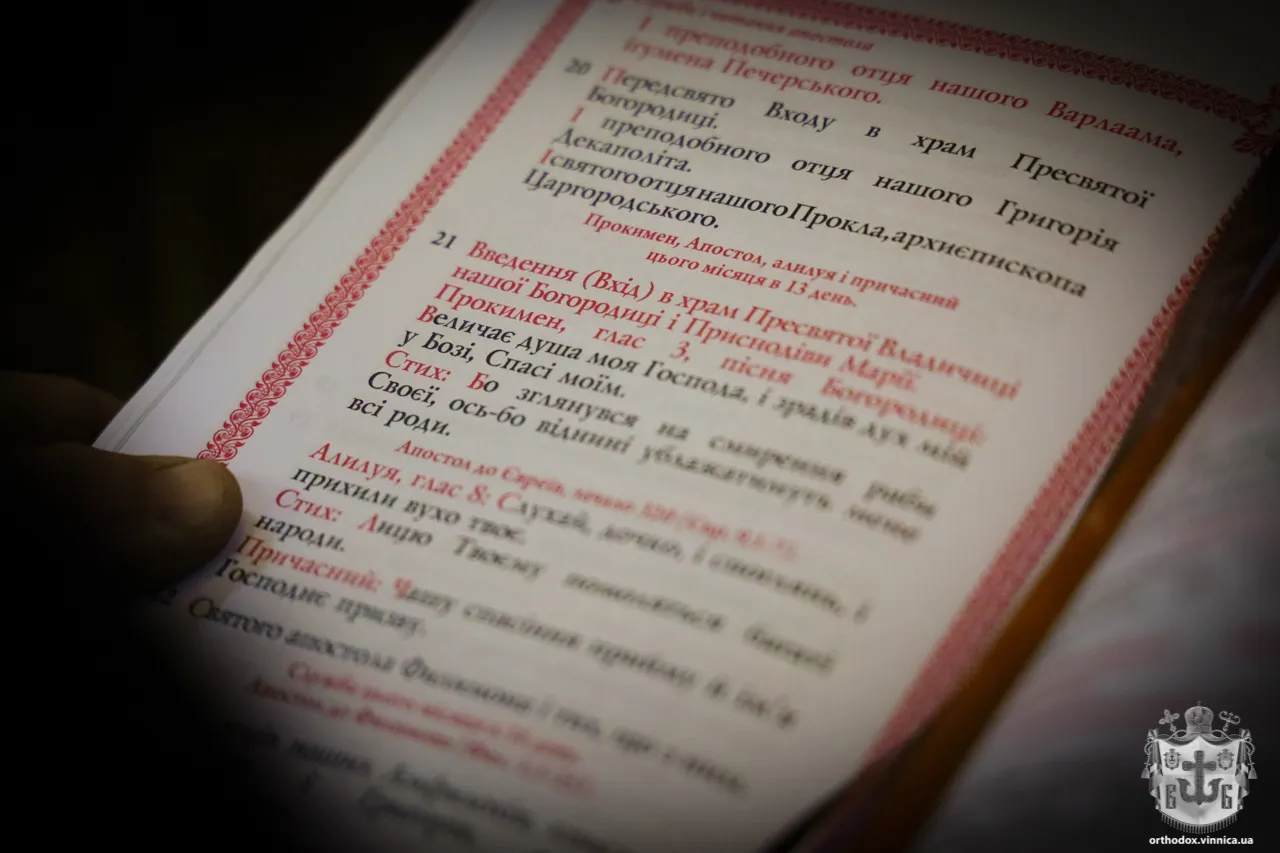 Служба, і читання апостола
І преподобного отця нашого Варлаама,
ігумена Печерського.
20 Передсвято Входу в храм Пресвятої
Богородиці.
І преподобного отця нашого Григорія
Декаполіта.
І святого отця нашого Прокла, архиєпископа
Царгородського.
Прокимен, Апостол, алилуя і причасний
цього місяця в 13 день.
21 Введення (Вхід) в храм Пресвятої Владичиці
нашої Богородиці і Приснодіви Марії.
Прокимен, глас 3, пісня Богородиці:
Величає душа моя Господа, і зрадів дух мій
у Бозі, Спасі моїм.
Стих: Бо зглянувся на смирення раби
Своєї, ось-бо віднині ублажатимуть мене
всі роди.
Апостол до Євреїв,
Алилуя, глас 8: Слухай, дочко, і споглянь, і
прихили вухо твоє.
Стих: Лицю Твоєму помоляться багаті
народи.
Причасний: Чашу спасіння прийму й ім'я
Господнє призву.
Святого апостола Филимона і
orthodox.vinnica.ua